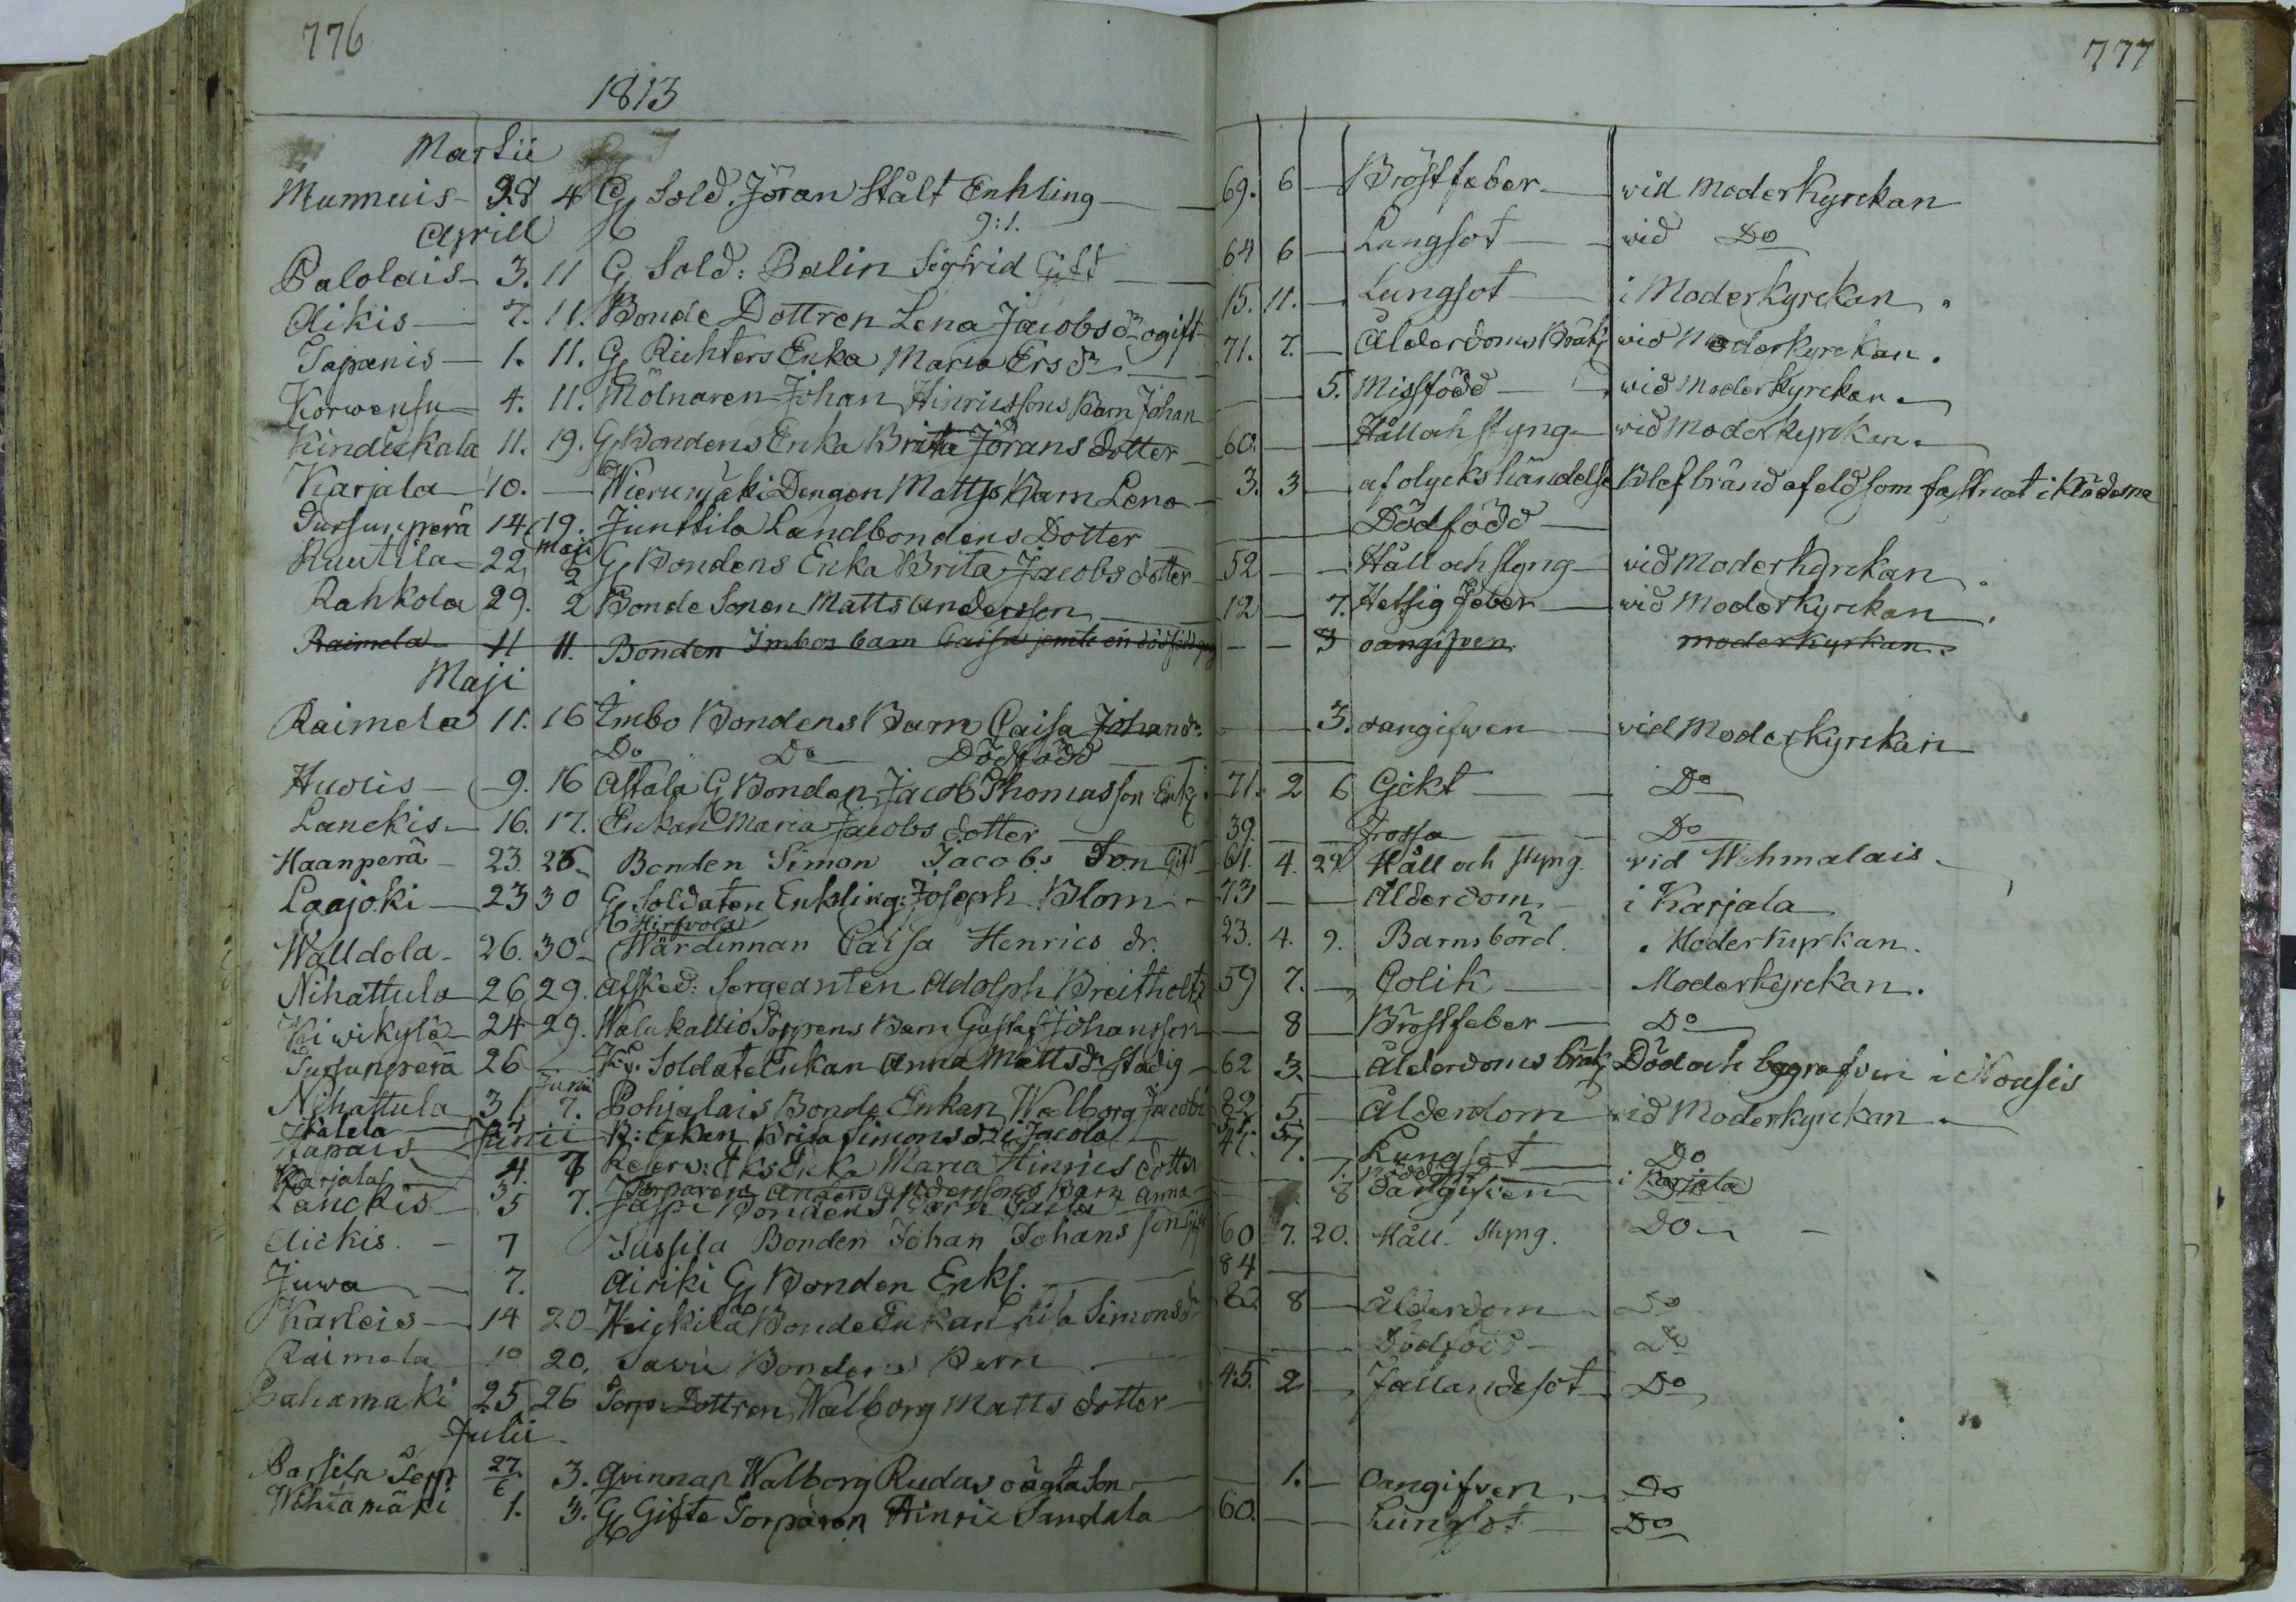 776
777
1813
Martii
Munnuis 28 4 G Sold. Jöran Stålt Enkling 69. 6 Bröstfeber wid Moderkyrckan
Aprill 9:1.
Palolais 3. 11 G Sold: Balin Sigfrid Gift 64 6 Lungsot wid Do
Aikis 7. 11. Bonde Dottren Lena Jacobs dr ogift 15. 11. Lungsot i Moderkyrckan.
Tapanis 1. 11. G Richters Enka Maria Ers dr 71. 7. Ålderdoms Bräkl wid Moderkyrckan.
Korwensu 4. 11. Mölnaren Johan Hinricssons Barn Johan 5. Missfödd wid Moderkyrckan
Kindukala 11. 19. G Bondens Enka Brita Jörans dotter 60. Håll och styng wid Moderkyrckan
Karjala 10. Wierumäki Drengen Matts Barn Lena 3. 3 af olyckshändelse Blef bränd af eld som fastnat i Kläderna
Tursunperä 14 19. Junttila Landbondens Dotter Dödfödd
Maji
Ruutila 22 2 G Bondens Enka Brita Jacobs dotter 52 Håll och styng wid Moderkyrckan.
Rahkola 29. 2 Bonde Sonen Matts Andersson 12 7. Hetsig Feber wid Moderkyrckan.
Raimela 11 11. Bonden Imbos barn Caisa jemte en dödfödd 3 oangifven moderkyrkan.
Maji
Raimela 11. 16 Imbo Bondens Barn Caisa Johans dr. 3. oangifwen wid Moderkyrckan
Do Do Dödfödd
Huois 9. 16 Astala G Bonden Jacob Thomasson Enkl 71. 2 6 Gikt Do
Lanckis 16. 17. Enkan Maria Jacobs dotter 39. Frossa Do
Haanperä 23. 26 Bonden Simon Jacobs Son Gift 61. 4. 22 Håll och styng. wid Wehmalais
Laajoki 23 30 G Soldaten Enkling: Joseph Blom 73 Ålderdom i Karjala
Hirfvola
Walldola 26. 30 Wärdinnan Caisa Henrics dr. 23. 4. 9. Barnsbörd. Moderkyrkan.
Nihattula 26 29. Afsked: Sergeanten Adolph Breitholtz 59 7. Colik Moderkyrckan.
Kiwikylä 24 29. Walukallio Torppens Barn Gustaf Johansson 8 Bröstfeber Do
Tursunperä 26 Soldate Enkan Anna Matts dr Stadig 62 3. Ålderdoms bräk Död och begrafven i Nousis
Junii
Nihattula 31 7. Pohjalais Bonde Enkan Walborg Jacobs 82 5. Ålderdom wid Moderkyrckan
Junii Enkan Brita Simons dr i Jacola
4. 7 Enka Maria Hinrics dotter 41. 7. Lungsot Do
Karjala 3 Torparen Anders Anderssons Barn Anna i Karjala
Lanckis 5 7. Jaspi Bondens Barn Caisa 8 oangifven
Aickis. 7 Jussila Bonden Johan Johans son 60 7. 20. Håll Styng. Do
Juwa 7. Airiki G Bonden Enkl. 84
Karleis 14 20 Heickilä Bonde Enkan Simons dr 8 Ålderdom Do
Raimela 10 20. Savii Bondens Barn Dödfödd Do
Pahamaki 25 26 Torp. Dottren Walborg Matts dotter 45. 2 Fallandesot Do
Julii
27/6 3. Qvinnan Walborg Rudas oägta Son 1. Oangifven Do
Wehtamäki 1. 3. G Gifte Torparen Hinric Sandala 60. Lungsot Do